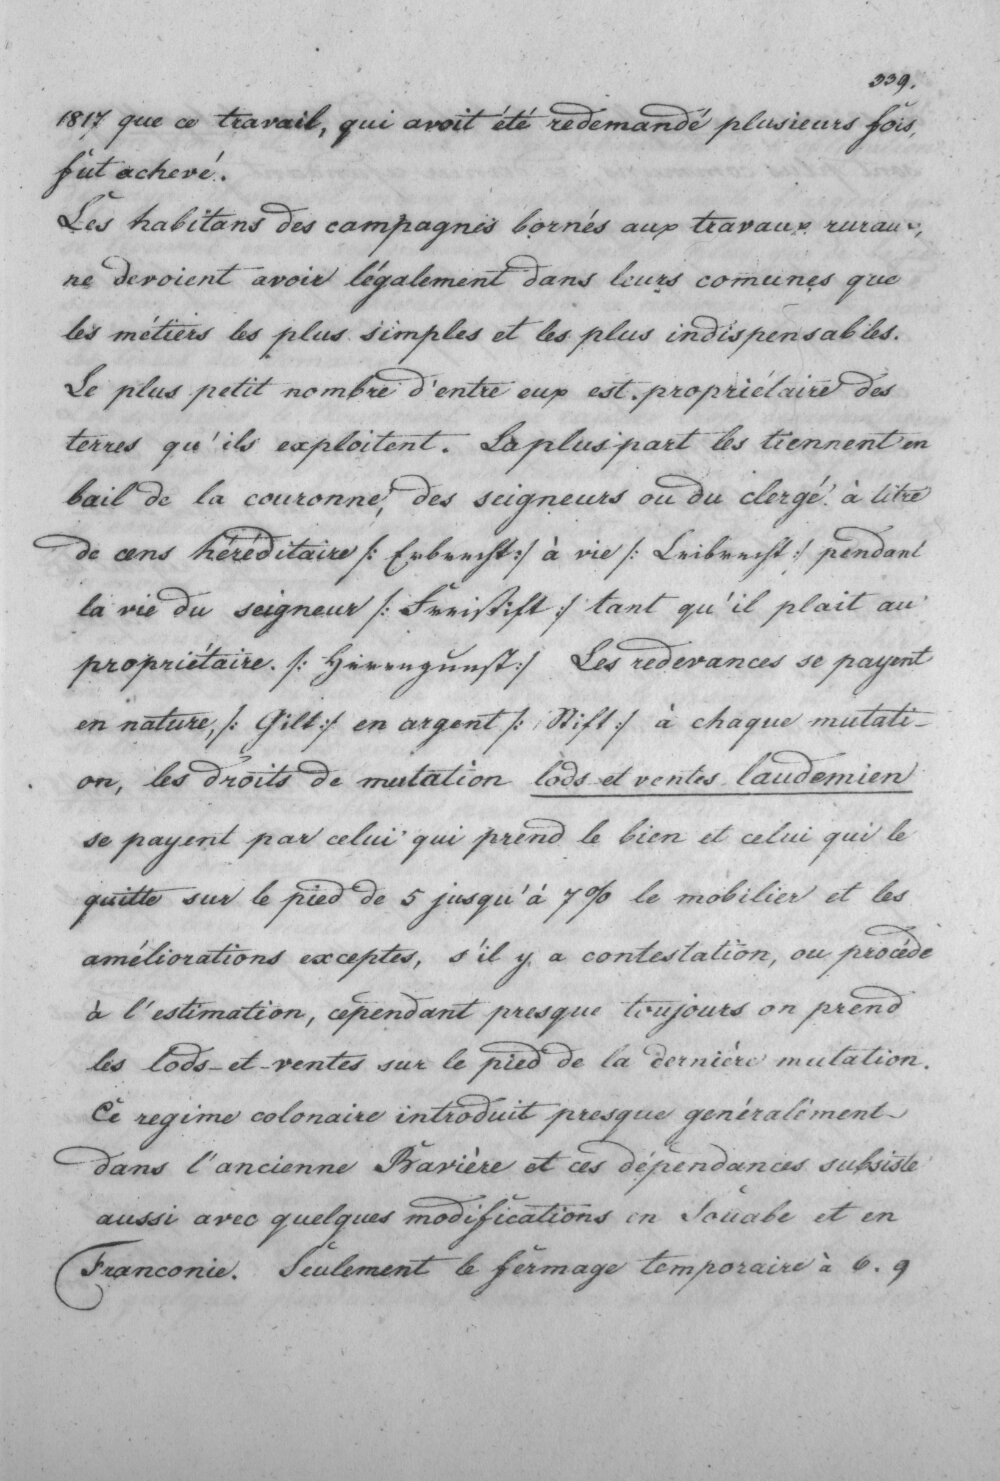 339.
1817 que ce travail, qui avoit été redemandé plusieurs fois,
fut achevé.
Les habitans des campagnes bornés aux travaux ruraux,
ne devoient avoir légalement dans leurs comunes que
les métiers les plus simples et les plus indispensables.
Le plus petit nombre d'entre eux est propriétaire des
terres qu'ils exploitent. La pluspart les tiennent en
bail de la couronne, des seigneurs ou du clergé à titre
de cens héréditaire /: Erbrecht :/ à vie /: Leibrecht :/ pendant
la vie du seigneur /: Freistift :/ tant qu'il plait au
propriétaire. /: Herrengunst :/ Les redevances se payent
en nature, /: Gilt :/ en argent /: Stift :/ à chaque mutati-
on, les droits de mutation lods-et ventes laudemien
se payent par celui qui prend le bien et celui qui le
quitte sur le pied de 5 jusqu'á 7% le mobilier et les
améliorations exceptes, s'il y a contestation, ou procéde
à l'estimation, cependant presque toujours on prend
les lods-et-ventes sur le pied de la derniére mutation.
Ce regime colonaire introduit presque genéralement
dans l'ancienne Bavière et ces dépendances subsiste
aussi avec quelques modifications en Souabe et en
Franconie. Seulement le fermage temporaire à 6. 9